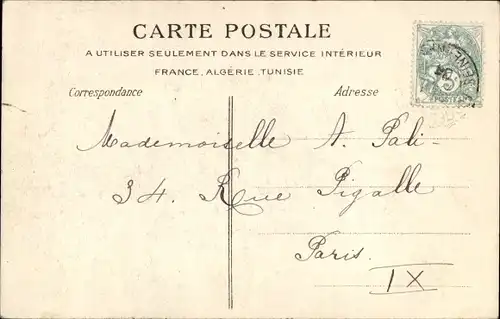 CARTE POSTALE
A UTILISER SEULEMENT DANS LE SERVICE INTÉRIEUR
FRANCE, ALGÉRIE, TUNISIE
Correspondance Adresse
Mademoiselle A. Pali-
34. Rue Pigalle
Paris.
IX